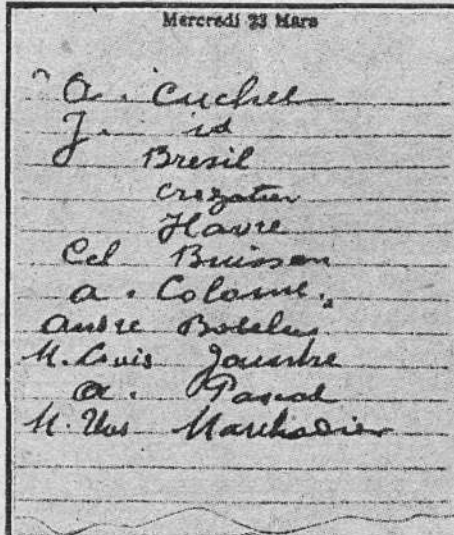 Mercredi 23 Mars
A. Cuchet
J. id
Bresil
Crozatier
Havre
Cel Buisson
A. Colomer.
Andre Botelus
M. Louis Jountre
A. Pascal
M. Marchadier